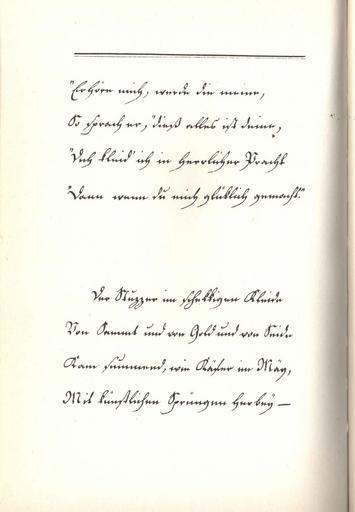 "Erhöre mich, werde die meine,
So sprach er, "dieß alles ist deine,
"Dich kleid' ich in herrlicher Pracht
"Dann wenn du mich glücklich gemacht."
Der Stuzzer im schekkigen Kleide
Von Sammt und von Gold und von Seide
Kam summend, wie Käfer im May,
Mit künstlichen Sprüngen herbey —